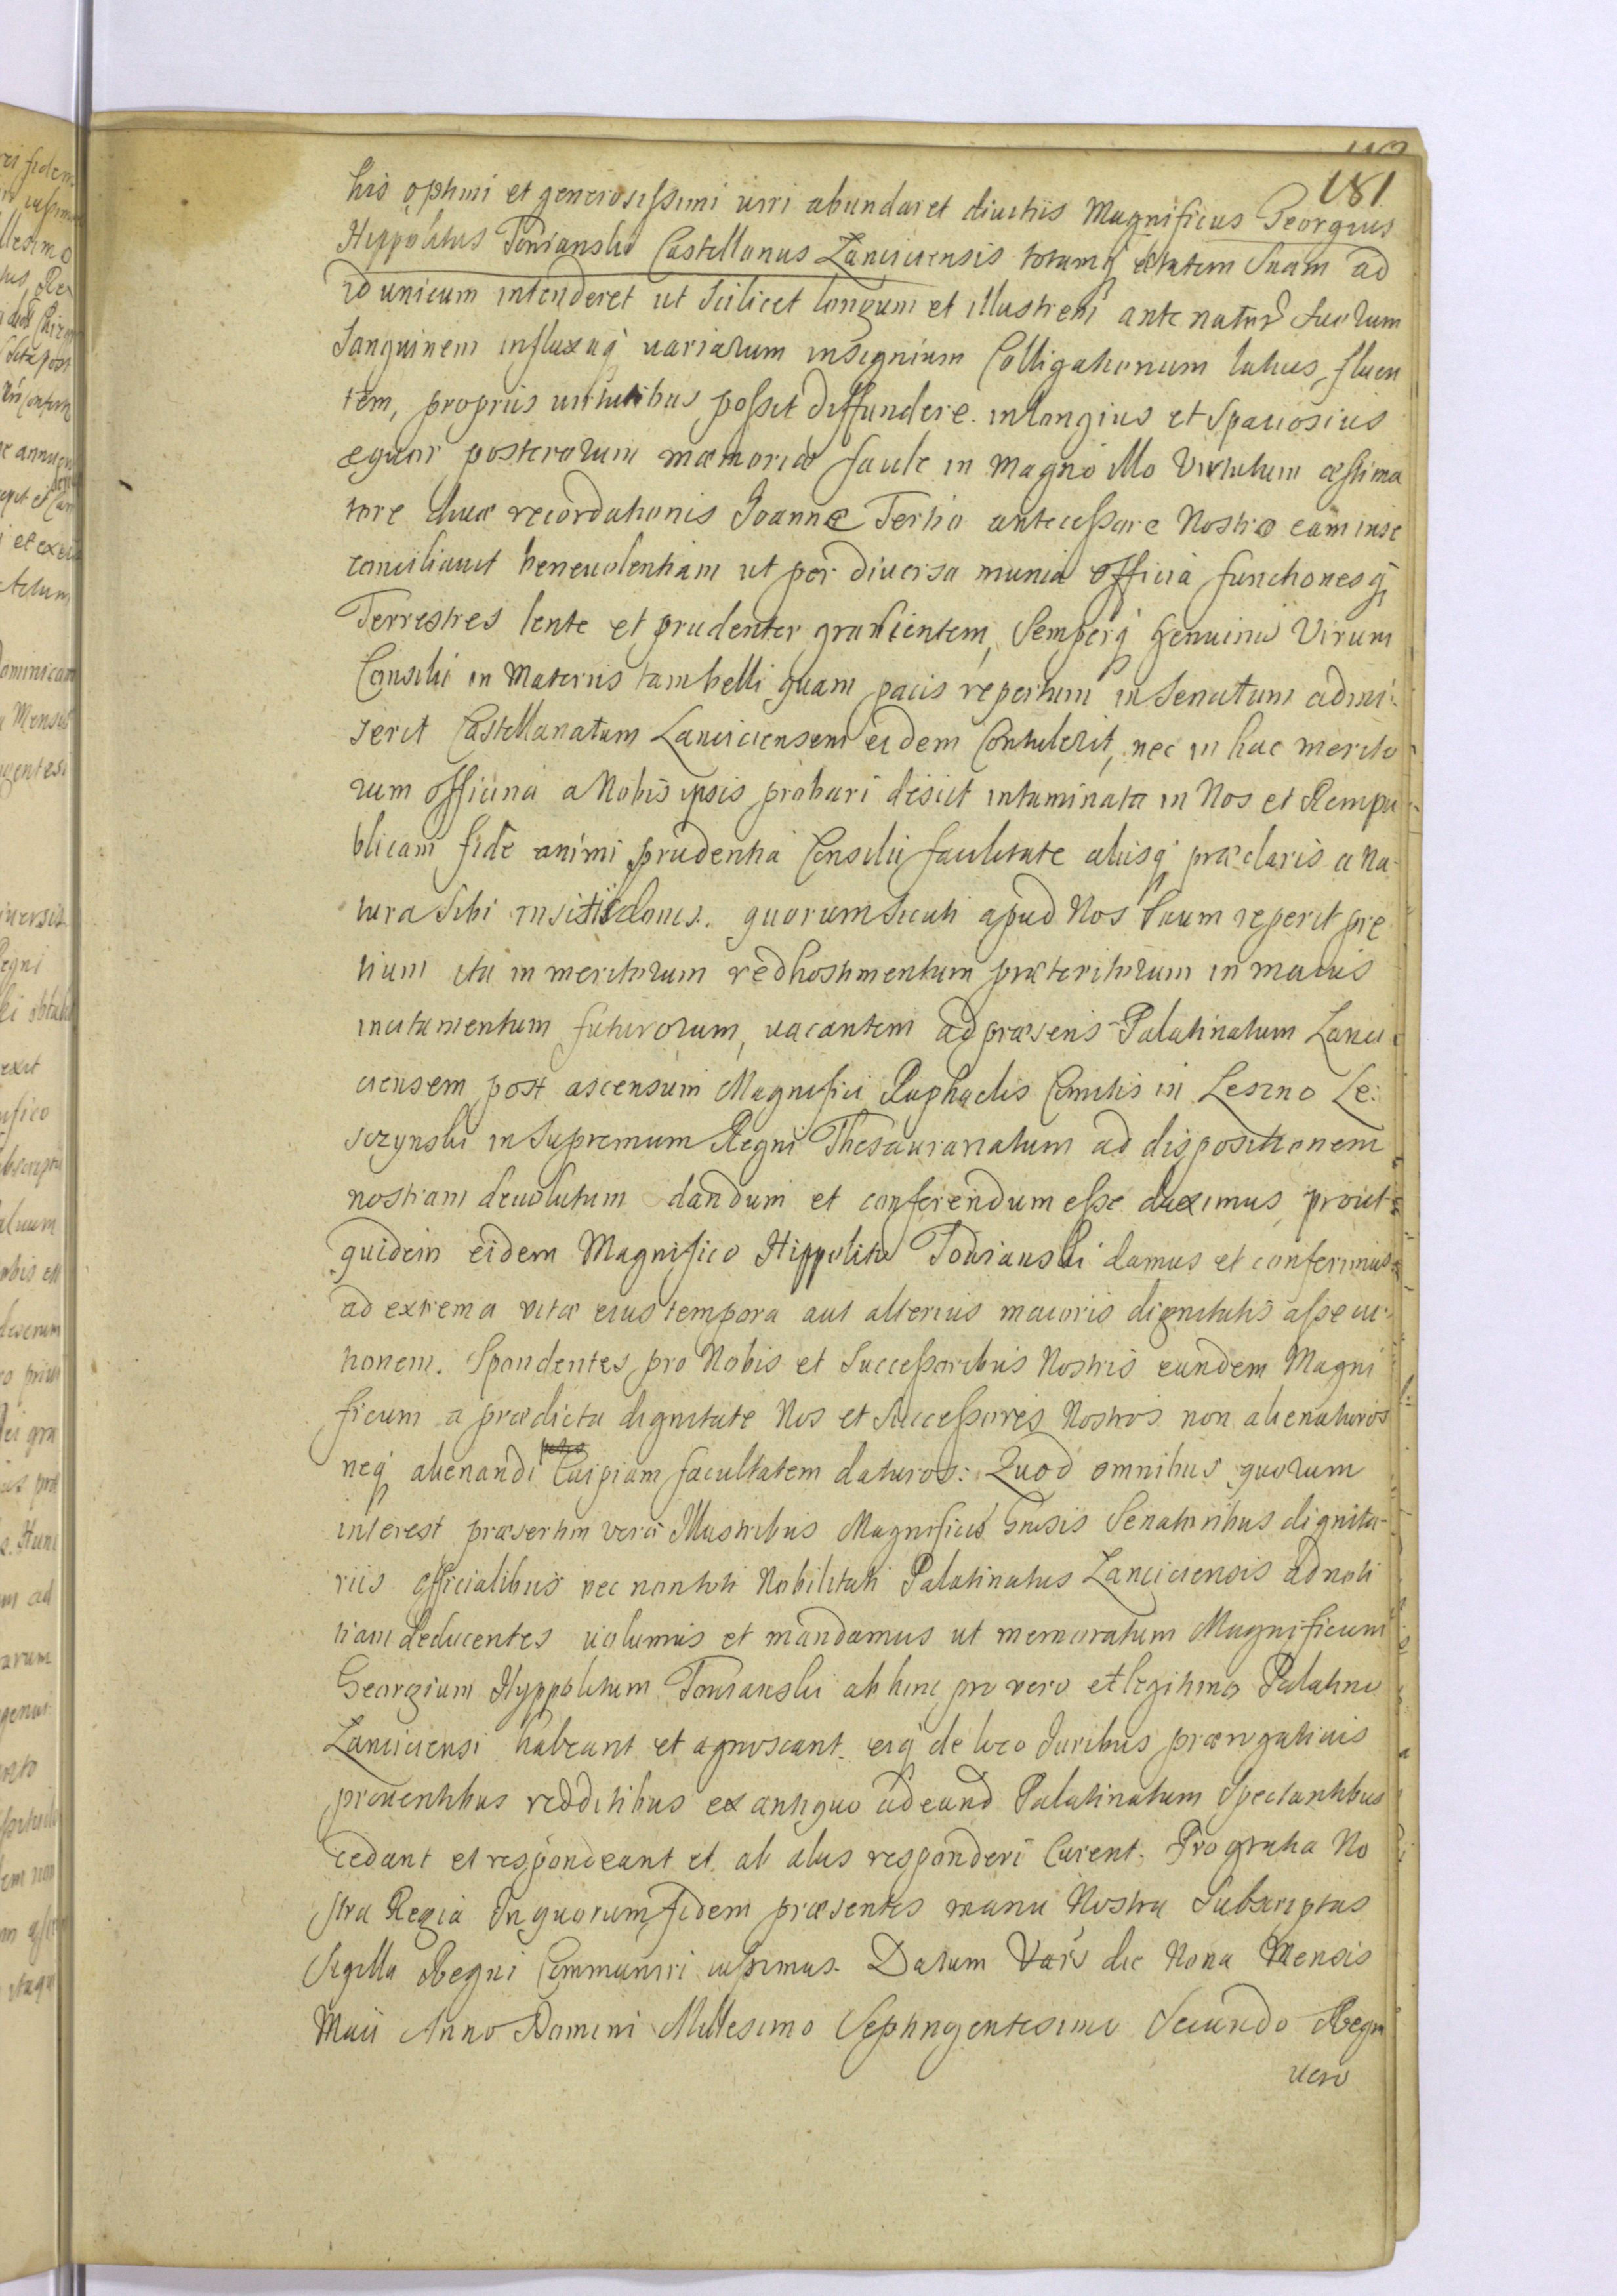 181
his optimi et generosissimi viri abundaret divitiis Magnificus Georgius
Hippolitus Towianski Castellanus Lanciciensis totamq ætatem Suam ad
id unicum intenderet ut Scilicet longum et illustrem antenatorũ Suorum
Sanguinem influxuq variarum insignium Colligationum latius, fluen
tem, propriis virtutibus possit diffundere in longius et Spatiosius
æquor posterorum mæmoriæ facile in Magno illo Virtutum æstima
tore divæ recordationis Joanne Tertio antecessore Nostro eam in se
conciliavit benevolentiam ut per diversa munia officia functionesq
Terrestres lente et prudenter gradientem, Semperq Genuinũ Virum
Consilii in Materiis tam belli quam pacis repertum in Senatum admi-
serit Castellanatum Lanciciensem eidem Contulerit, nec in hac merito
rum officina a Nobis ipsis probari desiit intaminata in Nos et Rempu
blicam fide animi prudentia Consilii facilitate aliisq præclaris a Na-
tura Sibi insitis donis. quorum Sicuti apud Nos Suum reperit pre
tium ita in meritorum redhostimentum præteritorum in maius
incitamentum futurorum, vacantem ad præsens Palatinatum Lanci
ciensem post ascensum Magnifici Raphaelis Comitis in Leszno Le:
sczynski in Supremum Regni Thesaurariatum ad dispositionem
nostram devolutum dandum et conferendum esse duximus, prout
quidem eidem Magnifico Hippolito Towianski damus et conferimus
ad extrema vitæ eius tempora aut alterius maioris dignitatis assecu-
tionem. Spondentes pro Nobis et Successoribus Nostris eundem Magni
ficum a prædicta dignitate Nos et Successores Nostros non alienaturos
neq alienandi Cuipiam facultatem daturos: Quod omnibus quorum
interest præsertim vero Illustribus Magnificis Gnosis Senatoribus dignita-
riis officialibus nec non toti Nobilitati Palatinatus Lanciciensis ad noti
tiam deducentes volumus et mandamus ut memoratum Magnificum
Georgium Hyppolitum Towianski ab hinc pro vero et legitimo Palatino
Lanciciensi habeant et agnoscant. eiq de loco Juribus prærogativis
proventibus redditibus ex antiquo ad eund Palatinatum Spectantibus
cedant et respondeant et ab aliis responderi Curent. Pro gratia No
stra Regia In quorum fidem præsentes manu Nostra Subscriptas
Sigillo Regni Communiri iussimus. Datum Vars die Nona Mensis
Maii Anno Domini Millesimo Septingentesimo Secundo Regni
vero